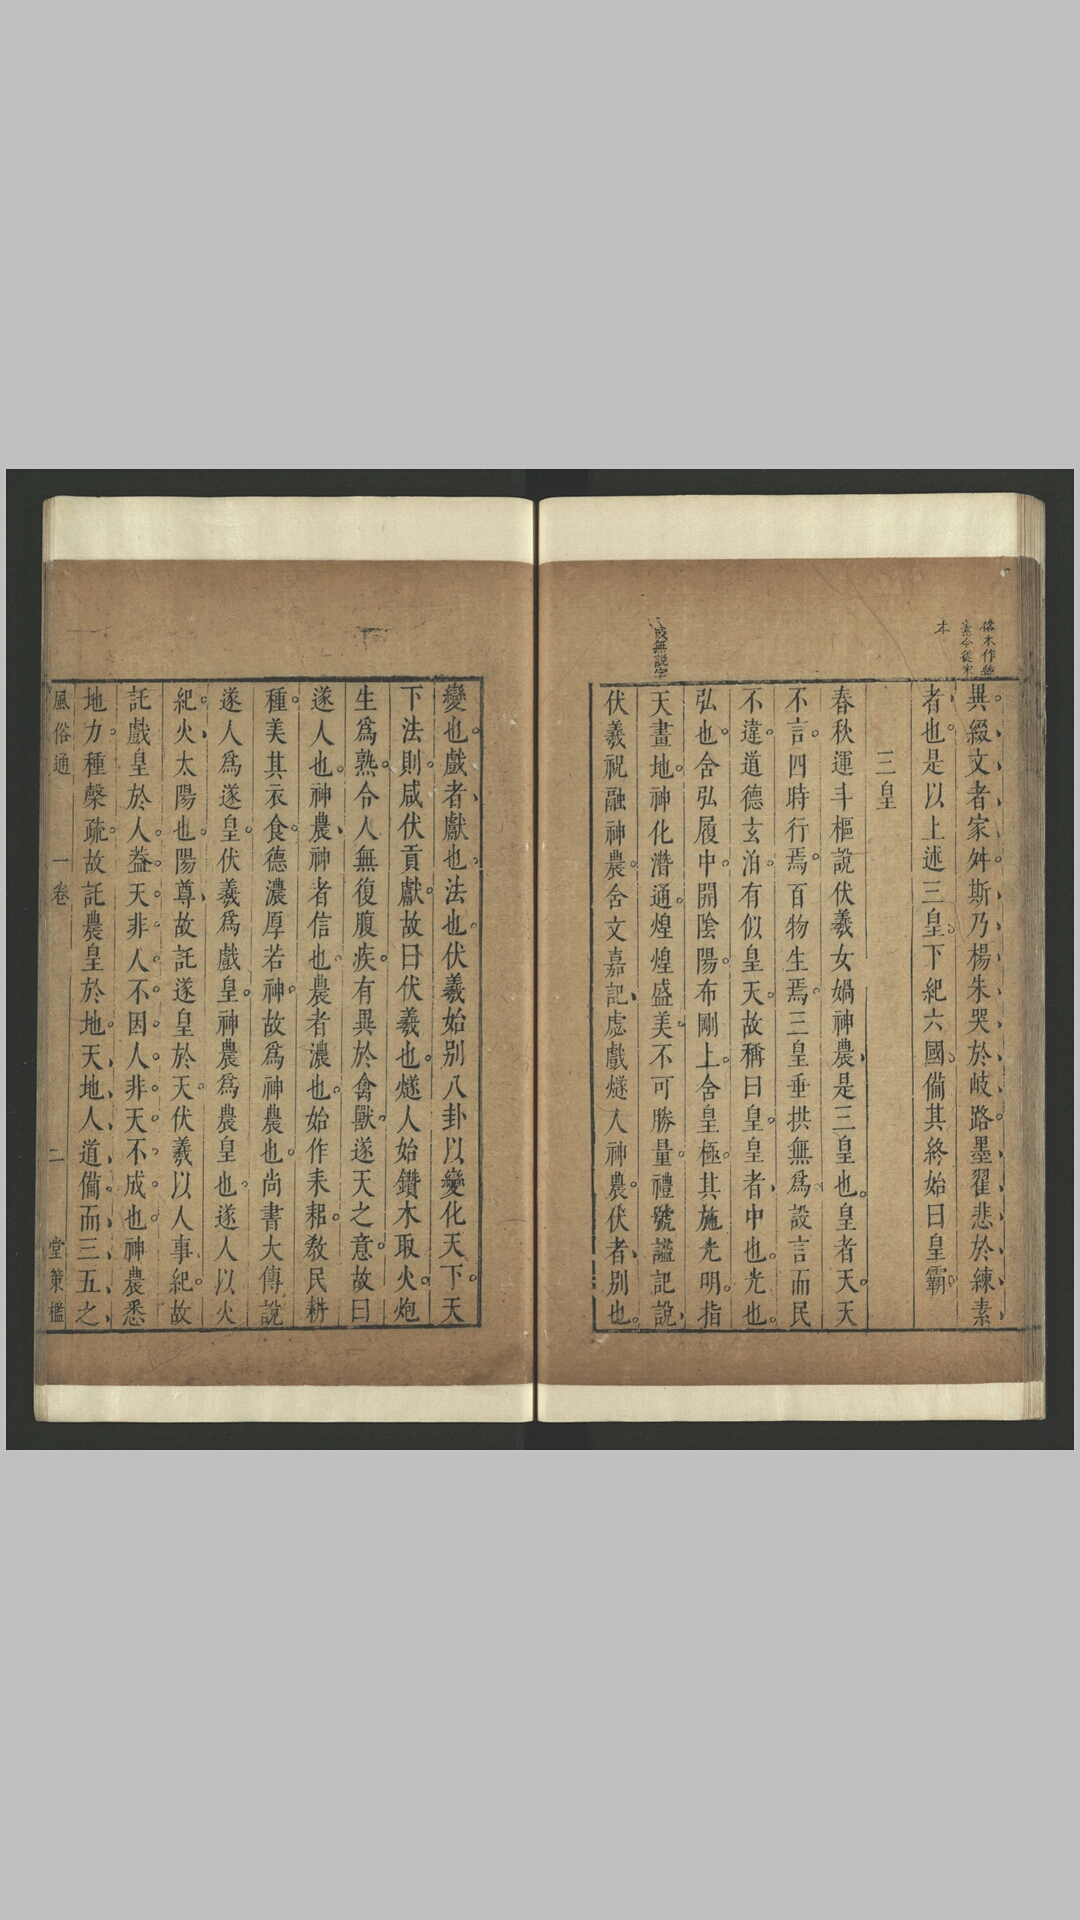 異綴文者家舛斯乃楊朱哭於岐路墨翟悲於練素
者也是以上述三皇下紀六國備其終始曰皇霸
三皇
春秋運斗樞說伏羲女媧神農是三皇也皇者天天
不言四時行焉百物生焉三皇垂拱無爲設言而民
不違道德玄泊有似皇天故稱曰皇皇者中也光也
弘也含弘履中開陰陽布剛上含皇極其施光明指
天畫地神化潛通煌煌盛美不可勝量禮號謚記說
伏羲祝融神農含文嘉記虙戲燧人神農伏者别也
或無說字
變也戲者獻也法也伏羲始别八卦以變化天下天
下法則咸伏貢獻故曰伏羲也燧人始鑽木取火炮
生爲熟令人無復腹疾有異於禽獸遂天之意故曰
遂人也神農神者信也農者濃也始作耒耜教民耕
種美其衣食德濃厚若神故爲神農也尚書大傳說
遂人爲遂皇伏羲爲戲皇神農爲農皇也遂人以火
紀火太陽也陽尊故託遂皇於天伏羲以人事紀故
託戲皇於人蓋天非人不因人非天不成也神農悉
地力種榖疏故託農皇於地天地人道備而三五之
風俗通 一卷 二 堂策檻